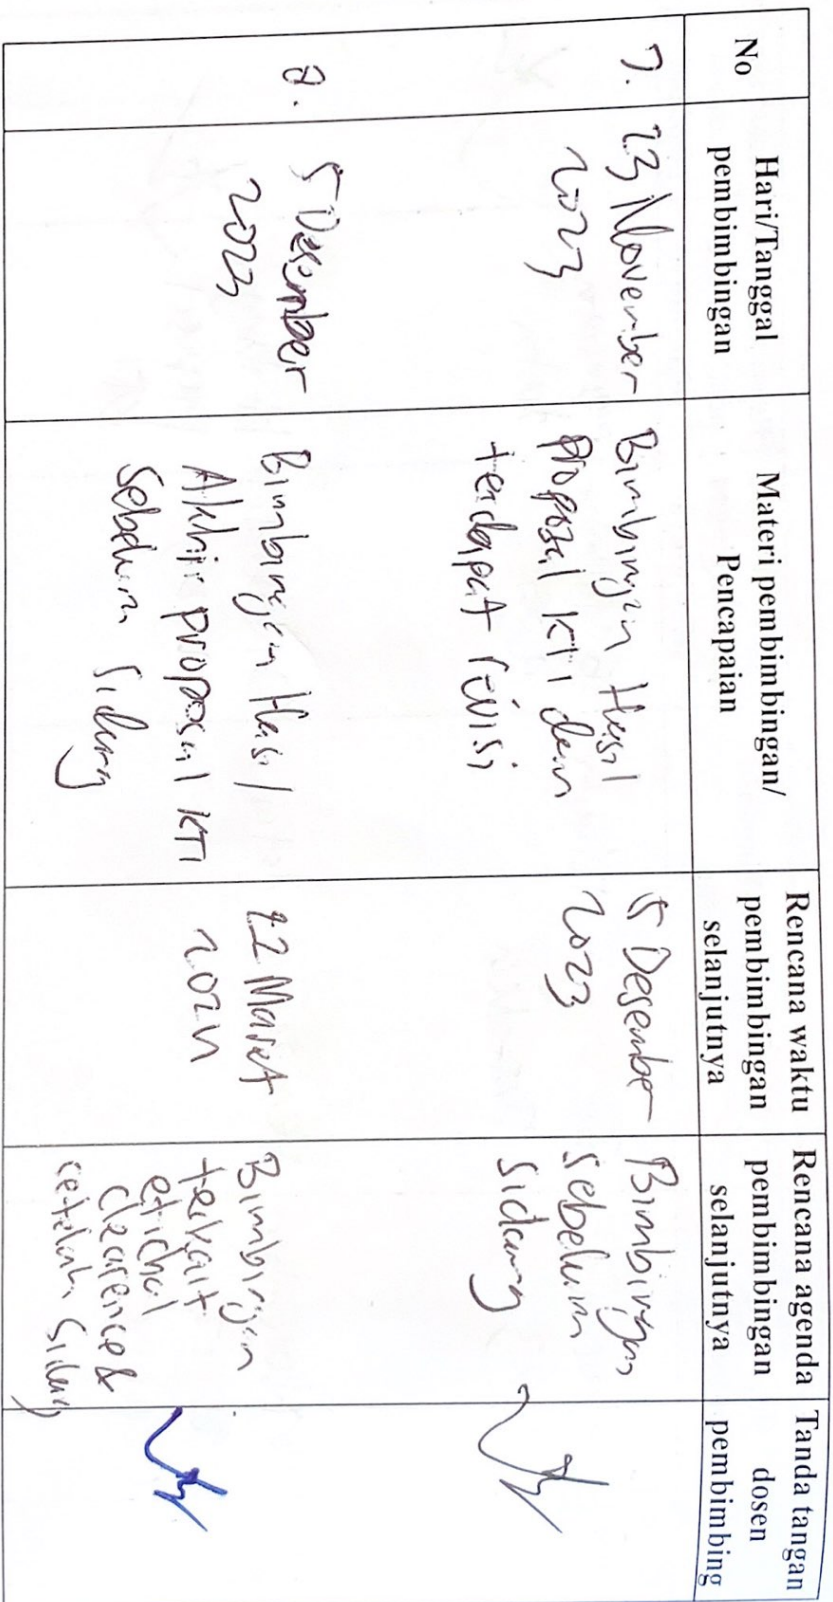 No
Hari/Tanggal
pembimbingan
Materi pembimbingan/
Pencapaian
Rencana waktu
pembimbingan
selanjutnya
Rencana agenda
pembimbingan
selanjutnya
Tanda tangan
dosen
pembimbing
7.
23 November
2023
Bimbingan Hasil
proposal KTI dan
terdapat revisi
5 Desember
2023
Bimbingan
sebelum
sidang
8.
5 Desember
2023
Bimbingan Hasil
Akhir proposal KTI
sebelum sidang
22 Maret
2024
Bimbingan
terkait
etichal
clearence &
setelah sidang